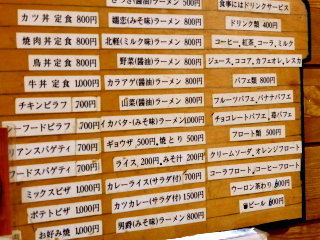 500円
カツ丼定食 800円
焼肉丼定食 800円
鳥丼定食 800円
牛丼定食 1,000円
チキンピラフ 700円
シーフードピラフ 700円
リアンスパゲティ 700円
フードスパゲティ 700円
ミックスピザ 1,000円
ポテトピザ 1,000円
お好み焼 1,000円
(みそ味)ラーメン 800円
北軽(ミルク味)ラーメン 800円
野菜(醤油)ラーメン 800円
カラアゲ(醤油)ラーメン 800円
山菜(醤油)ラーメン 800円
イカバター(みそ味)ラーメン 1,000円
ギョウザ、500円、焼とり 500円
ライス、200円、みそ汁 200円
カレーライス(サラダ付) 700円
カツカレー(サラダ付) 1500円
男爵(みそ味)ラーメン 800円
食事にはドリンクサービス
ドリンク類 400円
コーヒー、紅茶、コーラ、ミルク
ジュース、ココア、カフェオレ、レスカ
パフェ類 800円
フルーツパフェ、バナナパフェ
チョコレートパフェ、苺パフェ
フロート類 500円
クリームソーダ、オレンジフロート
コーラフロート、コーヒーフロート
ウーロン茶わり 600円
ビール 600円